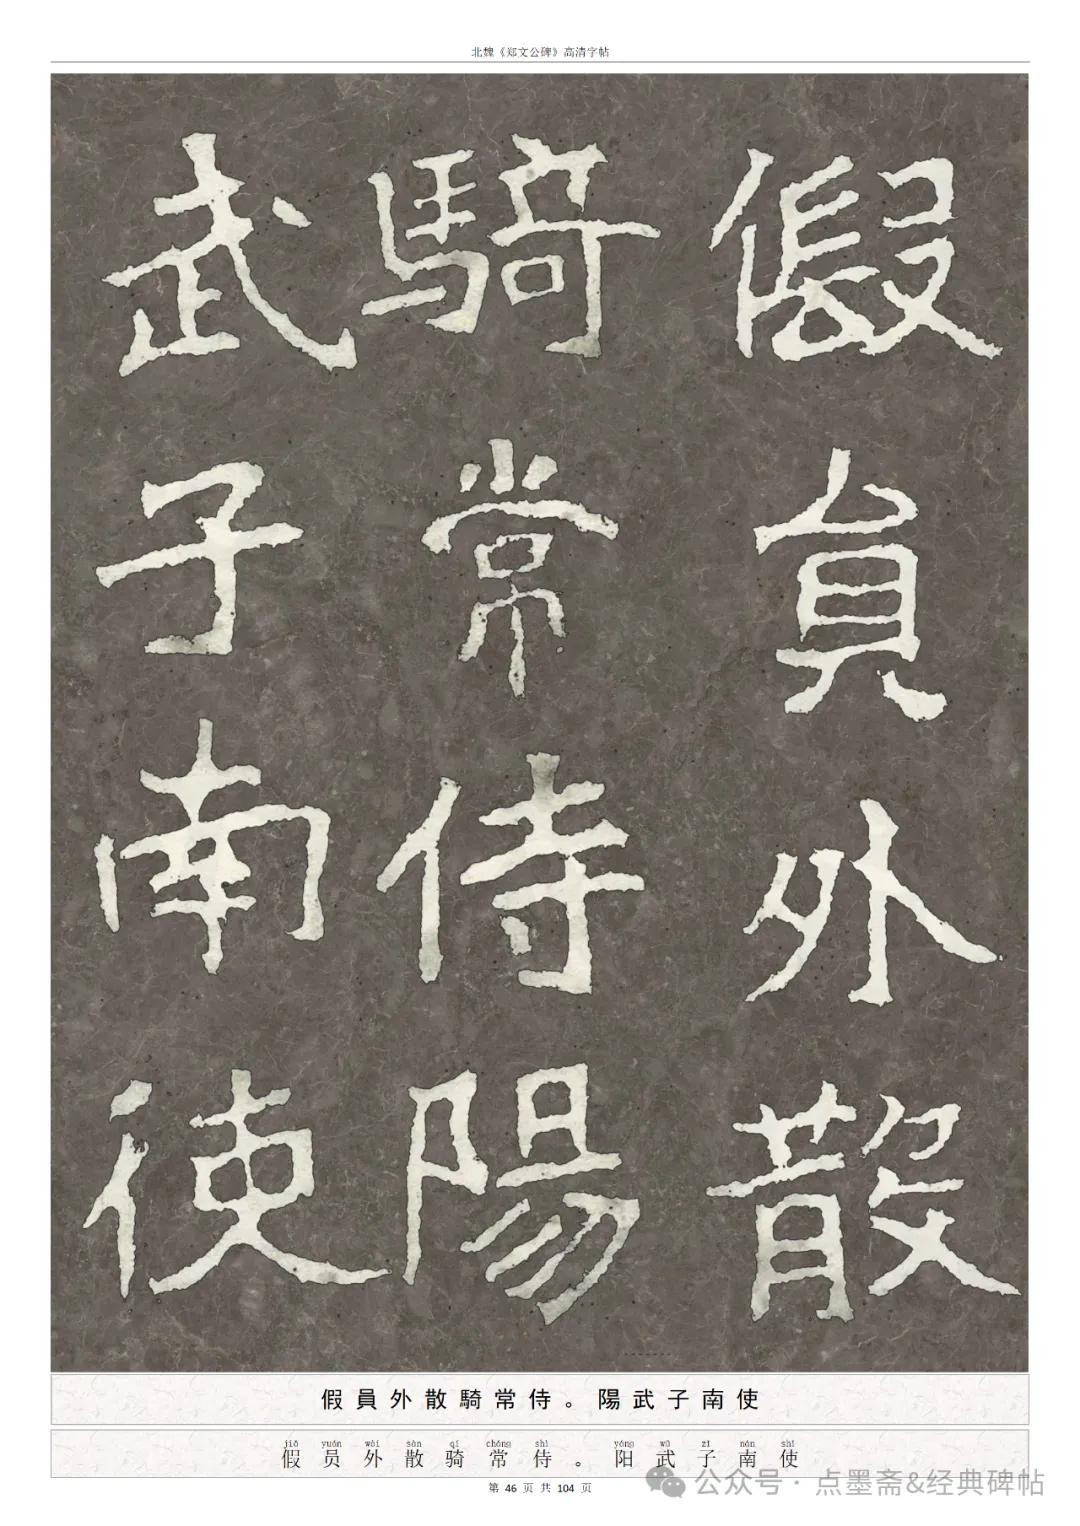 北魏《郑文公碑》高清字帖
假員外散
騎常侍陽
武子南使
假員外散騎常侍。陽武子南使
jiǎ yuán wài sàn qí cháng shì yáng wǔ zǐ nán shǐ
假员外散骑常侍。阳武子南使
第 46 页 共 104 页
公众号 · 点墨斋&经典碑帖